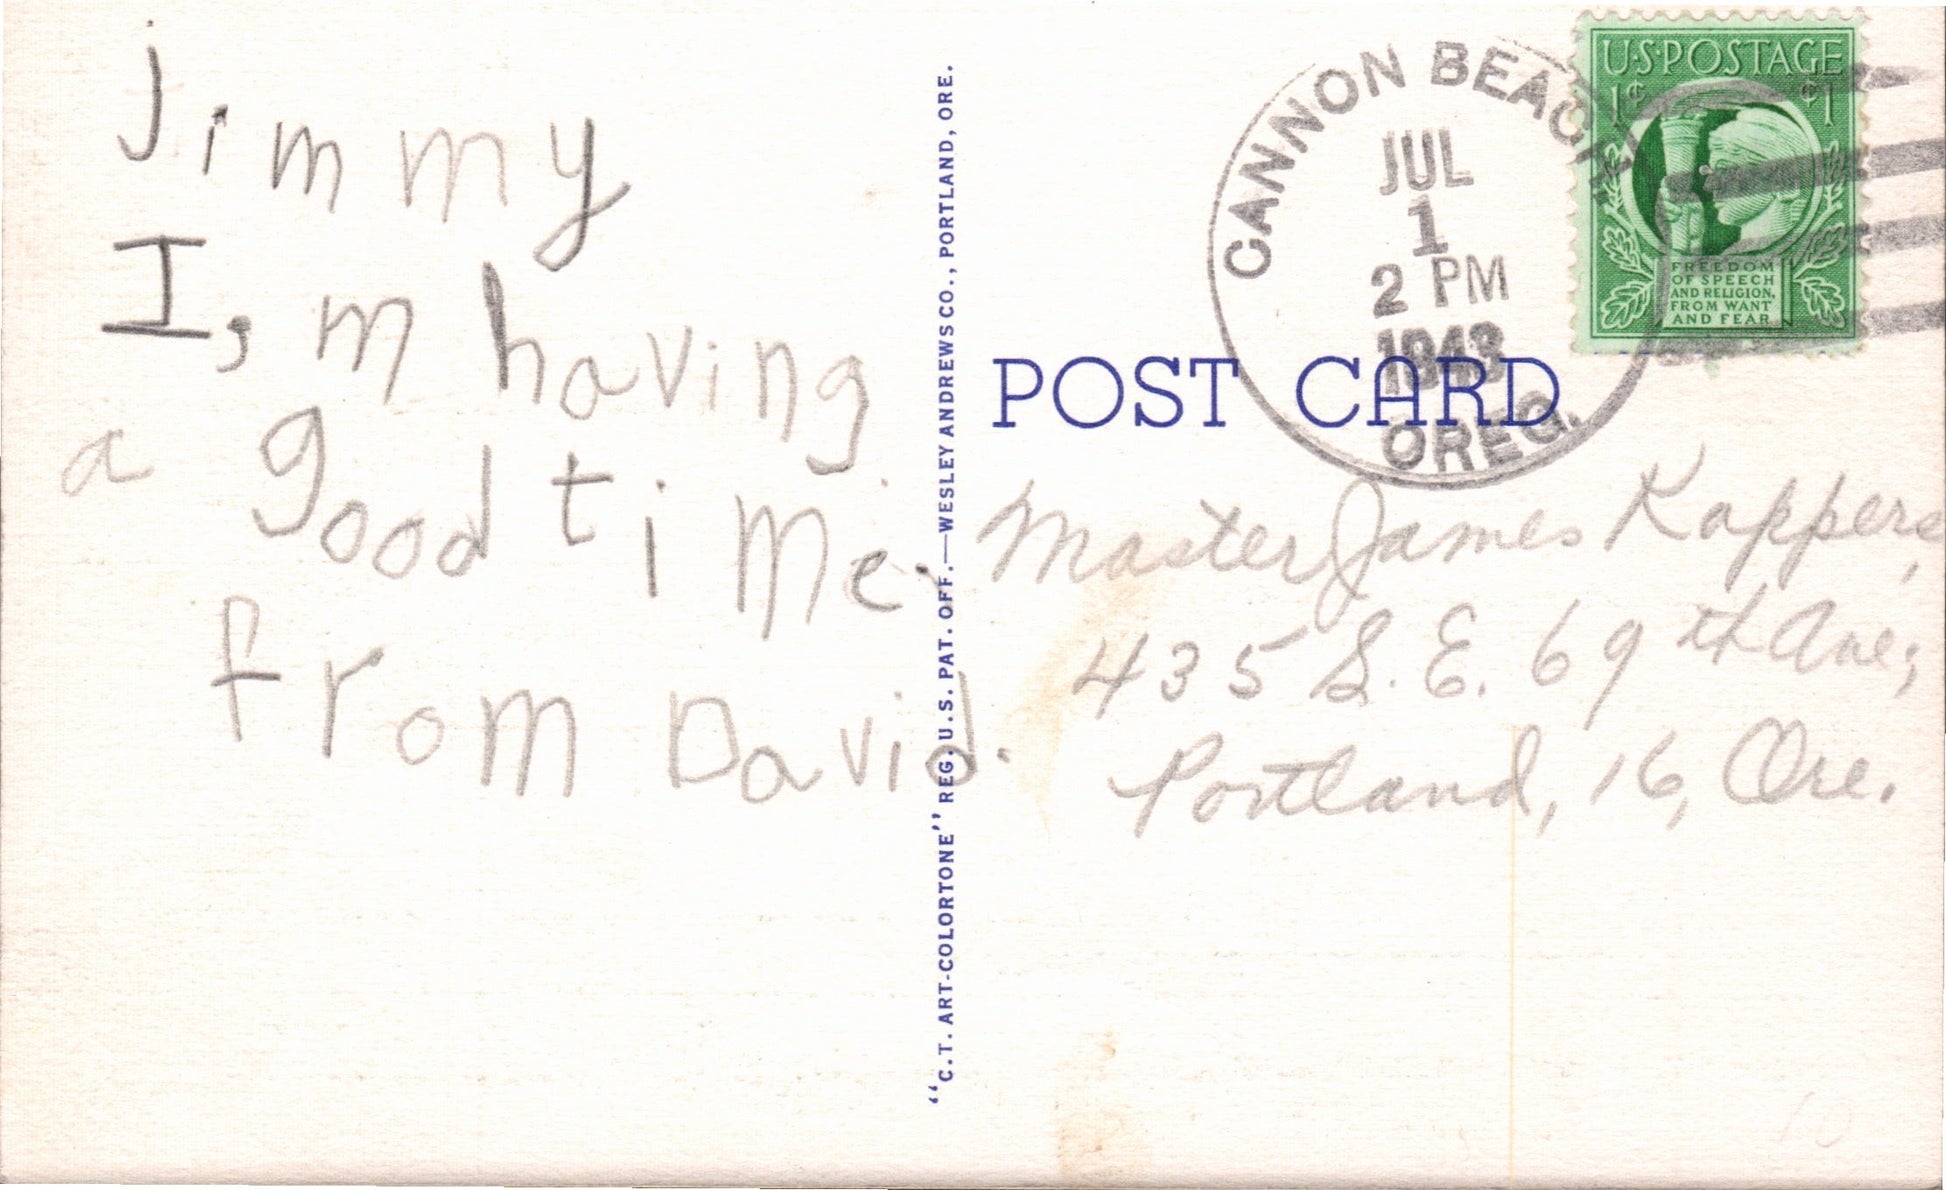 Jimmy
I,m having
a good time.
from David.
"C.T. ART-COLORTONE" REG. U.S. PAT. OFF.—WESLEY ANDREWS CO., PORTLAND, ORE.
CANNON BEACH
JUL
1
2 PM
1943
OREG.
U·S·POSTAGE
1¢ ¢1
FREEDOM
OF SPEECH
AND RELIGION,
FROM WANT
AND FEAR
POST CARD
Master James Kappers,
435 S.E. 69th Ave;
Portland, 16, Ore.
10